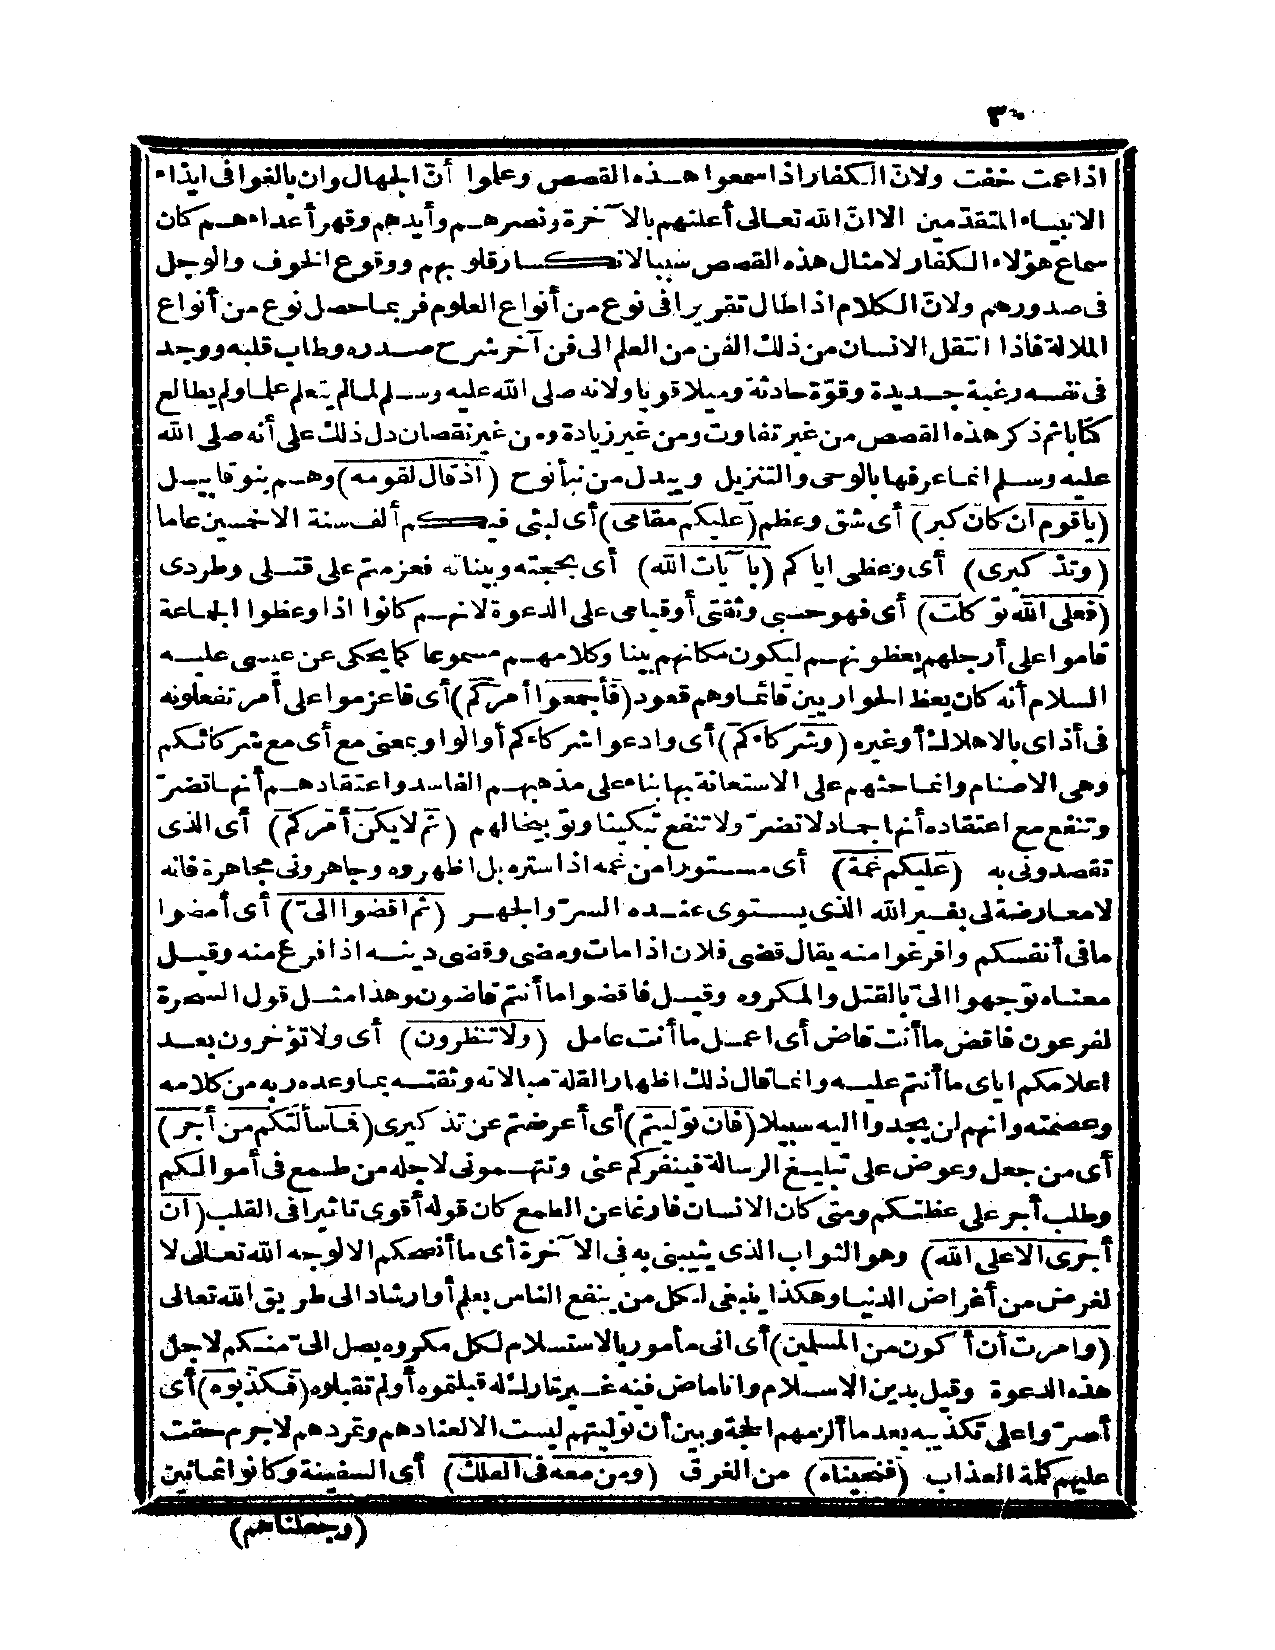 ٣٠
اذا عمت خفت ولانّ الكفار اذا سمعوا هذه القصص وعلموا أنّ الجهال وان بالغوا فى ايذاء
الانبياء المتقدّمين الا انّ الله تعالى أعلنهم بالآخرة ونصرهم وأيدهم وقهر أعداءهم كان
سماع هؤلاء الكفار لامثال هذه القصص سببا لانكسار قلوبهم ووقوع الخوف والوجل
فى صدورهم ولانّ الكلام اذا طال تقريرا فى نوع من أنواع العلوم فربما حصل نوع من أنواع
الملالة فاذا انتقل الانسان من ذلك الفن من العلم الى فن آخر شرح صدره وطاب قلبه ووجد
فى نفسه رغبة جديدة وقوّة حادثة وميلا قويا ولانه صلى الله عليه وسلم لما لم يتعلم علما ولم يطالع
كتابا ثم ذكر هذه القصص من غير تفاوت ومن غير زيادة ومن غير نقصان دل ذلك على أنه صلى الله
عليه وسلم انما عرفها بالوحى والتنزيل ويبدل من نبأ نوح (اذ قال لقومه) وهم بنو قابيل
(يا قوم ان كان كبر) أى شق وعظم (عليكم مقامى) أى لبثى فيكم ألف سنة الا خمسين عاما
(وتذكيرى) أى وعظى اياكم (بآيات الله) أى بحججته وبيناته فعزمتم على قتلى وطردى
(فعلى الله توكلت) أى فهو حسبى وثقتى أو قيامى على الدعوة لانهم كانوا اذا وعظوا الجماعة
قاموا على أرجلهم يعظونهم ليكون مكانهم بينا وكلامهم مسموعا كما يحكى عن عيسى عليه
السلام أنه كان يعظ الحواريين قائما وهم قعود (فأجمعوا أمركم) أى فاعزموا على أمر تفعلونه
فى أذاى بالاهلاك أو غيره (وشركاءكم) أى وادعوا شركاءكم أو الواو بمعنى مع أى مع شركائكم
وهى الاصنام وانما حثهم على الاستعانة بها بناء على مذهبهم الفاسد واعتقادهم أنها تضرّ
وتنفع مع اعتقاده أنها جماد لا تضرّ ولا تنفع تبكيتا وتوبيخا لهم (ثم لا يكن أمركم) أى الذى
تقصدونى به (عليكم غمة) أى مستورا من غمه اذا ستره بل اظهروه وجاهرونى مجاهرة فانه
لا معارضة لى بغير الله الذى يستوى عنده السرّ والجهر (ثم اقضوا الىّ) أى أمضوا
ما فى أنفسكم وافرغوا منه يقال قضى فلان اذا مات ومضى وقضى دينه اذا فرغ منه وقيل
معناه توجهوا الىّ بالقتل والمكروه وقيل فاقضوا ما أنتم قاضون وهذا مثل قول السحرة
لفرعون فاقض ما أنت قاض أى اعمل ما أنت عامل (ولا تنظرون) أى ولا تؤخرون بعد
اعلامكم اياى ما أنتم عليه وانما قال ذلك اظهارا لقلة مبالاته وثقته بما وعده ربه من كلامه
وعصمته وانهم لن يجدوا اليه سبيلا (فان توليتم) أى أعرضتم عن تذكيرى (فما سألتكم من أجر)
أى من جعل وعوض على تبليغ الرسالة فينفركم عنى وتتهمونى لاجله من طمع فى أموالكم
وطلب أجر على عظتكم ومتى كان الانسان فارغا عن الطمع كان قوله أقوى تاثيرا فى القلب (ان
أجرى الا على الله) وهو الثواب الذى يثيبنى به فى الآخرة أى ما أنصحكم الا لوجه الله تعالى لا
لغرض من أغراض الدنيا وهكذا ينبغى لكل من ينفع الناس بعلم أو ارشاد الى طريق الله تعالى
(وامرت أن أكون من المسلمين) أى انى مأمور بالاستسلام لكل مكروه يصل الىّ منكم لاجل
هذه الدعوة وقيل بدين الاسلام وانا ماض فيه غير تارك له قبلتموه أو لم تقبلوه (فكذبوه) أى
أصرّوا على تكذيبه بعد ما ألزمهم الحجة وبين أن توليتهم ليست الا لعنادهم وتمردهم لا جرم حقت
عليهم كلمة العذاب (فنجيناه) من الغرق (ومن معه فى الفلك) أى السفينة وكانوا ثمانين
(وجعلناهم)